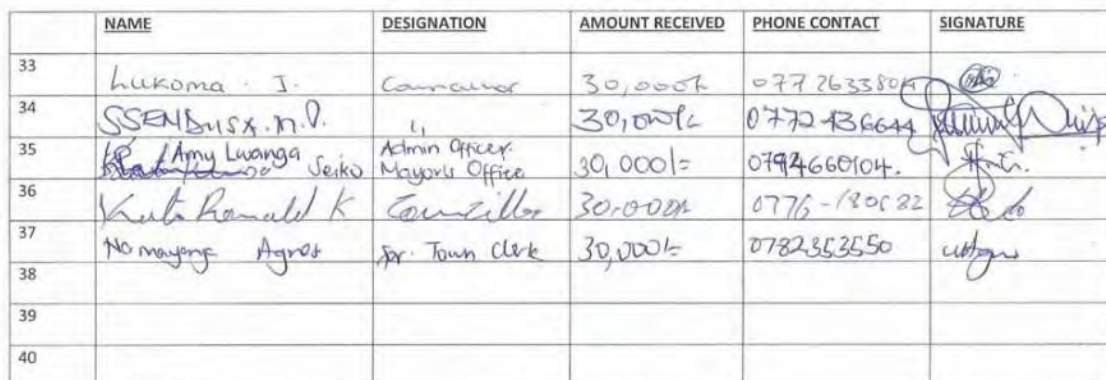 NAME DESIGNATION AMOUNT RECEIVED PHONE CONTACT SIGNATURE
33 Lukoma . J. 30,000/= 0772633804
34 SSENDUSA. M.D. " 30,000/= 0772436644
35 Amy Lwanga Seiko Admin Officer Mayor's Office 30,000/= 0794660104.
36 Ronald K Councillor 30,000/= 0776-180682
37 Agnes for. Town Clerk 30,000/= 0782353550
38
39
40